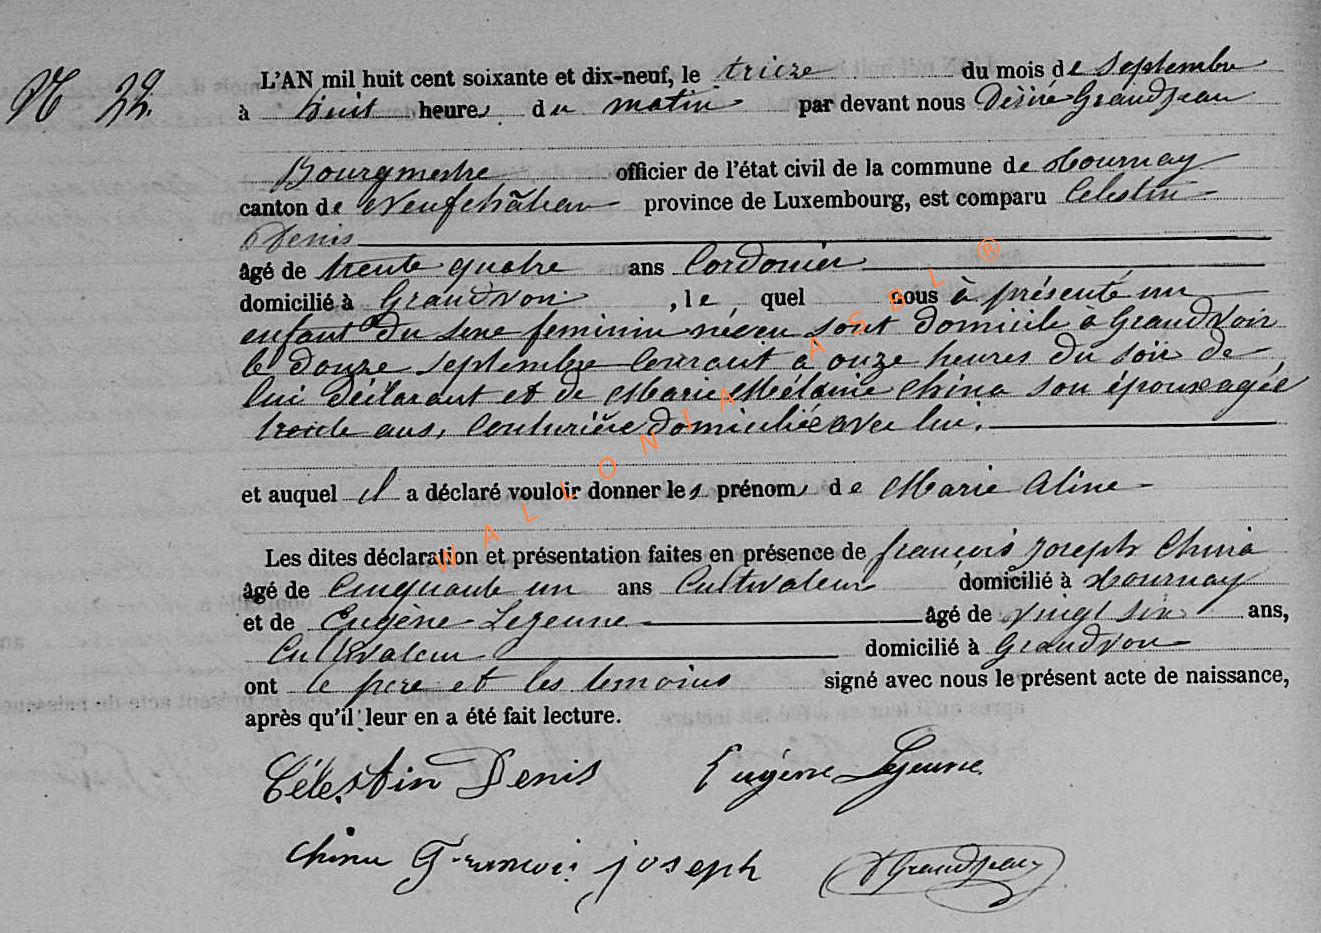 N 22.
L'AN mil huit cent soixante et dix-neuf, le treize du mois de septembre
à huit heures du matin par devant nous Désiré Grandjean
Bourgmestre officier de l'état civil de la commune de Tournay
canton de Neufchâteau province de Luxembourg, est comparu Celestin
Denis
âgé de trente quatre ans Cordonier
domicilié à Grandvoir, le quel nous à présenté un
enfant du sexe feminin né en sont domicile a Grandvoir
le douze septembre Courant a onze heures du soir de
lui déclarant et de Marie Mélanie China son épouse agée
trente ans, Couturière domiciliée avec lui.
et auquel il a déclaré vouloir donner les prénoms de Marie Aline
Les dites déclaration et présentation faites en présence de françois joseph China
âgé de Cinquante un ans Cultivateur domicilié à Tournay
et de Eugène Lejeune âgé de vingt six ans,
Cultivateur domicilié à Grandvoir
ont le pere et les temoins signé avec nous le présent acte de naissance,
après qu'il leur en a été fait lecture.
Célestin Denis Eugène Lejeune
China François joseph D Grandjean
WALLONIA ASBL ®